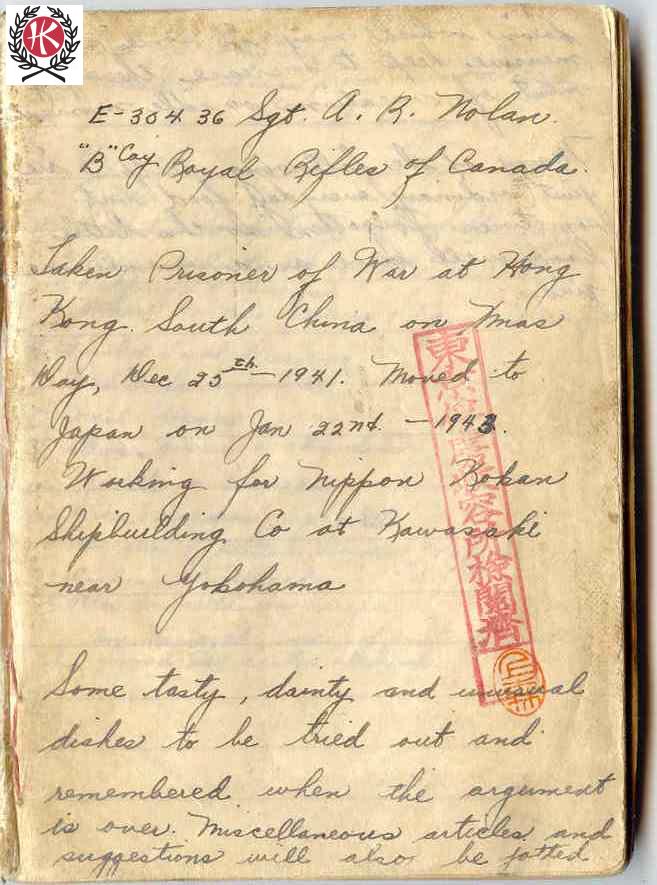 HK
E-30436 Sgt. A. R. Nolan.
"B" Coy Royal Rifles of Canada.
Taken Prisoner of War at Hong
Kong. South China on Xmas
Day, Dec 25th - 1941. Moved to
Japan on Jan 22nd. - 1943.
Working for Nippon Kokan
Shipbuilding Co at Kawasaki
near Yokohama
東京俘虜收容所檢閱濟
Some tasty, dainty and unusual
dishes to be tried out and
remembered when the argument
is over. Miscellaneous articles and
suggestions will also be jotted